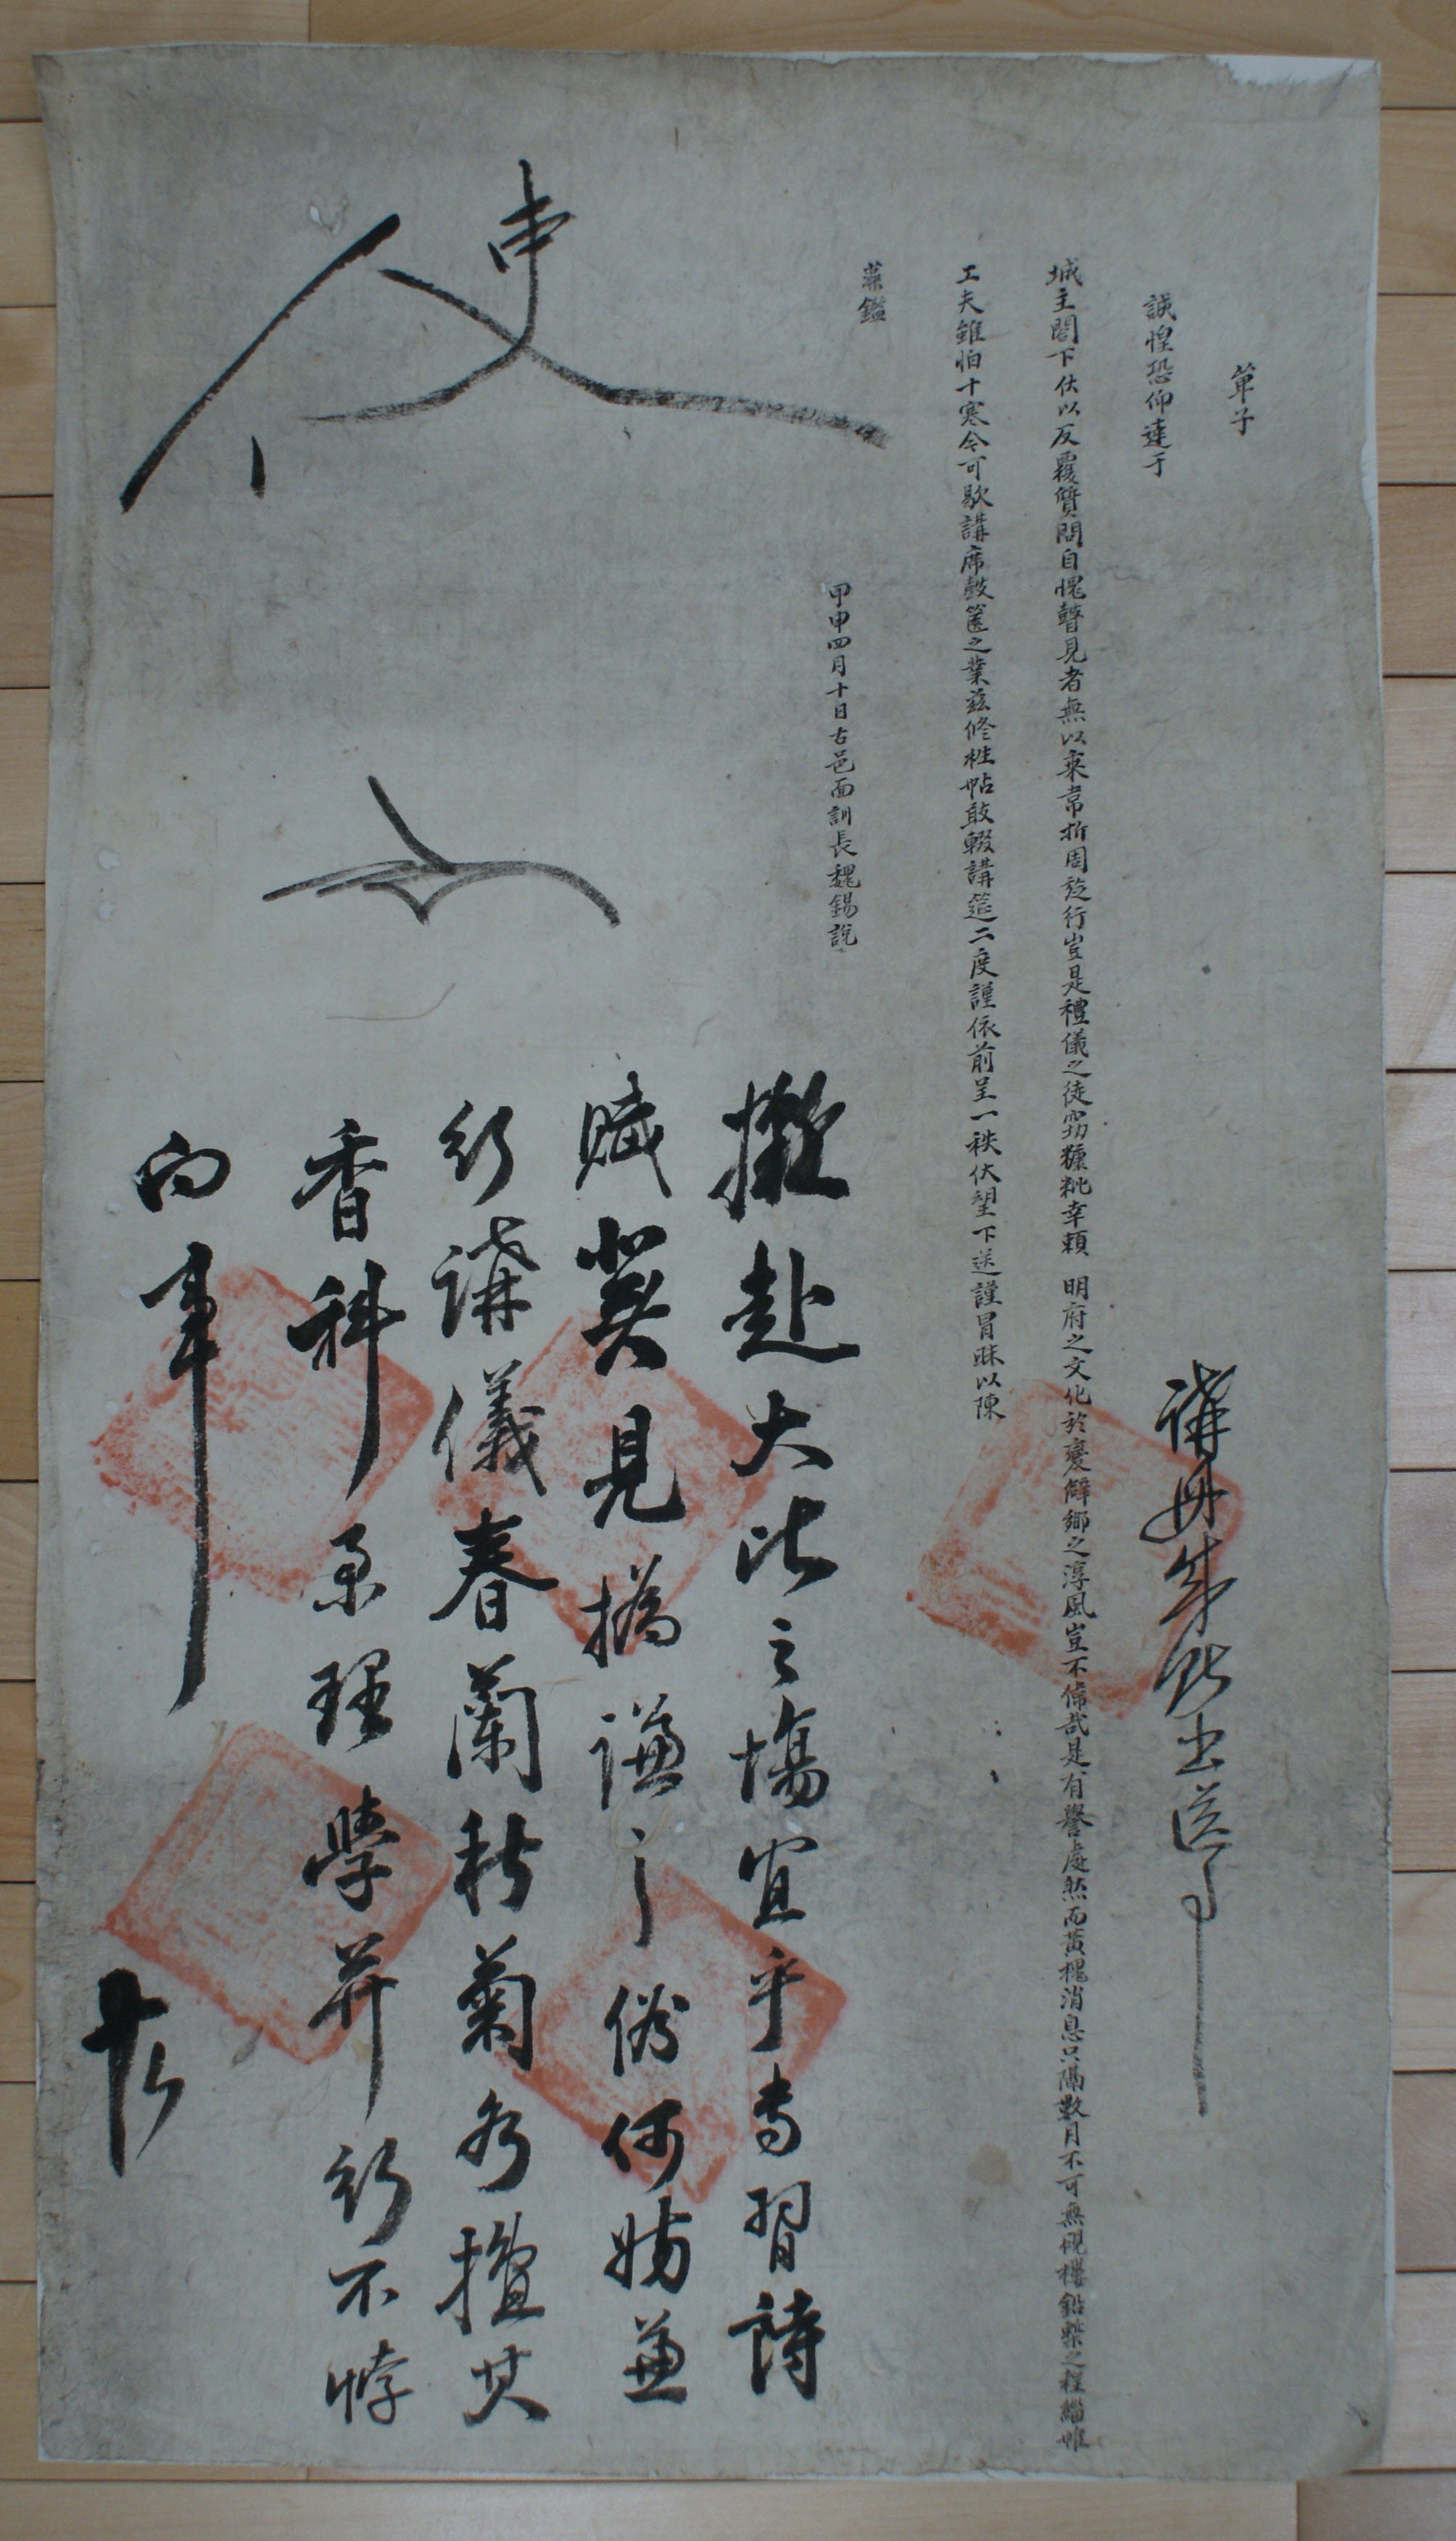 單子
誠惶恐仰達于
城主閤下伏以反覆質問自愧瞽見者無以乘韋折周旋行豈是禮儀之徒窃糠粃幸賴 明府之文化於變鮮鄉之淳風豈不偉哉是有譽處然而黃槐消息只隔數月不可無硯櫻鉛槧之程緇帷
工夫雖怕十寒今可歇講席鼓篋之業玆修牲帖敢輟講筵二度謹依前呈一秩伏望下送謹冒昧以陳
鑑
甲申四月十日古邑面訓長魏錫說
講冊出送事
使
撤赴大比之場宜乎專習詩
賦冀見撝謙之備何妨兼
行講儀春蘭秋菊各擅其
香科業理學並行不悖
向事
十六